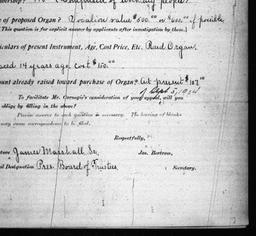 e of proposed Organ? Vocalion value $500.00 or $600.00 if possible
(This question is for explicit answer by applicants after investigation by them.)
rticulars of present Instrument, Age, Cost Price, Etc. Reed Organ.
14 years ago, cost $150.00
ount already raised toward purchase of Organ? At present $107.00
of Sept 5, 1904
To facilitate Mr. Carnegie's consideration of your appeal, will you
oblige by filling in the above?
Please answer to each question is necessary. The leaving of blanks
may cause correspondence to be filed.
Respectfully,
James Marshall Sr.
Jas. Bertram,
Designation Pres. Board of Trustees
Secretary.